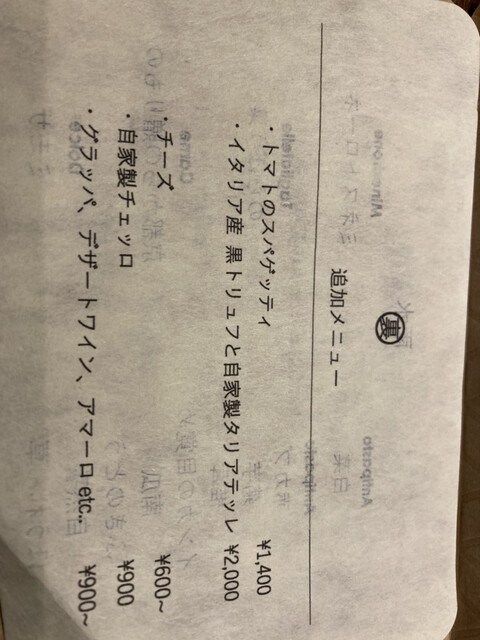 裏
追加メニュー
・トマトのスパゲッティ ¥1,400
・イタリア産 黒トリュフと自家製タリアテッレ ¥2,000
・チーズ ¥600~
・自家製チェッロ ¥900
・グラッパ、デザートワイン、アマーロ etc.. ¥900~